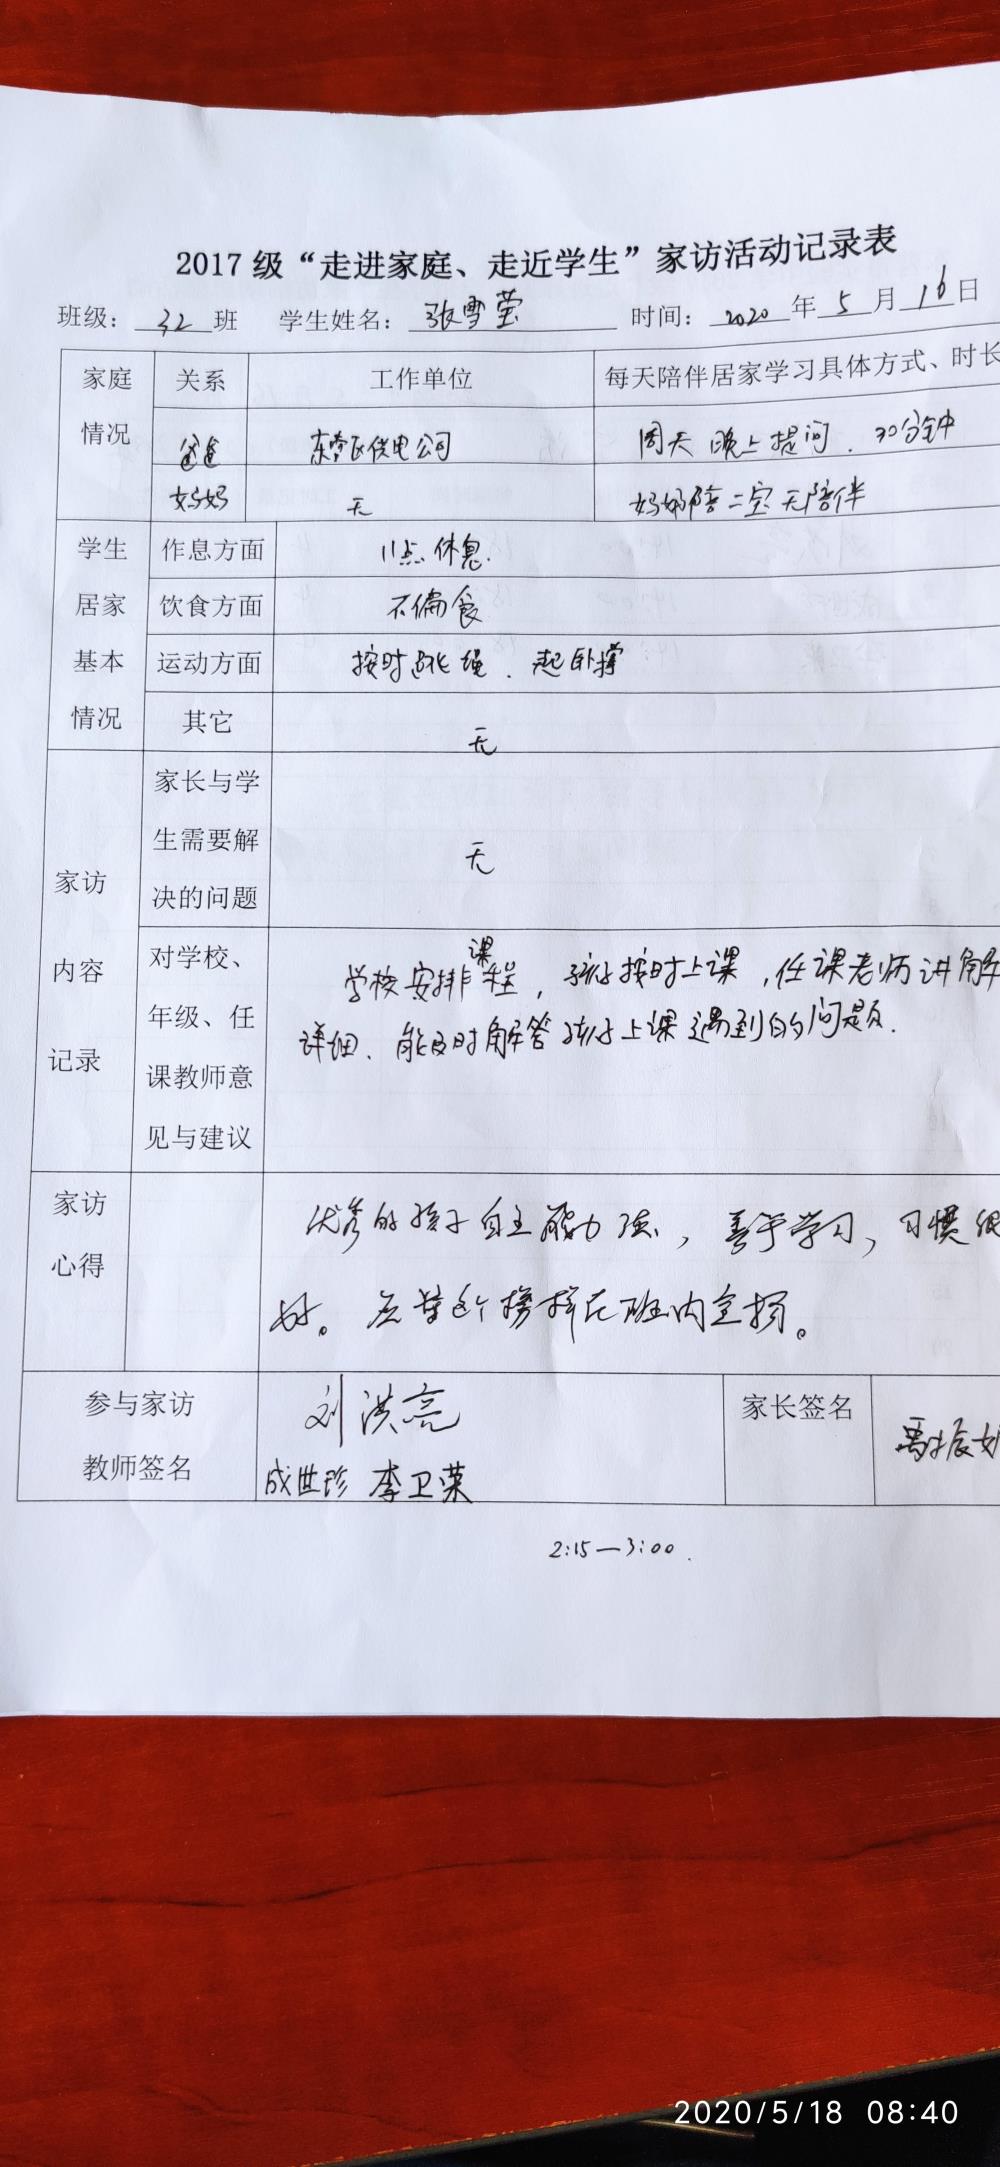 2017级“走进家庭、走近学生”家访活动记录表
班级：32班 学生姓名：张雪莹 时间：2020年5月16日
家庭情况 关系 工作单位 每天陪伴居家学习具体方式、时长
爸爸 东营区供电公司 周天 晚上提问．30分钟
妈妈 无 妈妈陪二宝 无陪伴
学生居家基本情况 作息方面 11点休息．
饮食方面 不偏食
运动方面 按时跳绳．起卧撑
其它 无
家访内容记录
家长与学
生需要解
决的问题
无
对学校、
年级、任
课教师意
见与建议
学校安排课程，孩子按时上课，任课老师讲解
详细．能及时解答孩子上课遇到的问题．
家访
心得
优秀的孩子自主能力强，善于学习，习惯很
好。应当这个榜样在班内宣扬。
参与家访
教师签名
刘洪亮
成世珍 李卫荣
家长签名
2:15—3:00．
2020/5/18 08:40